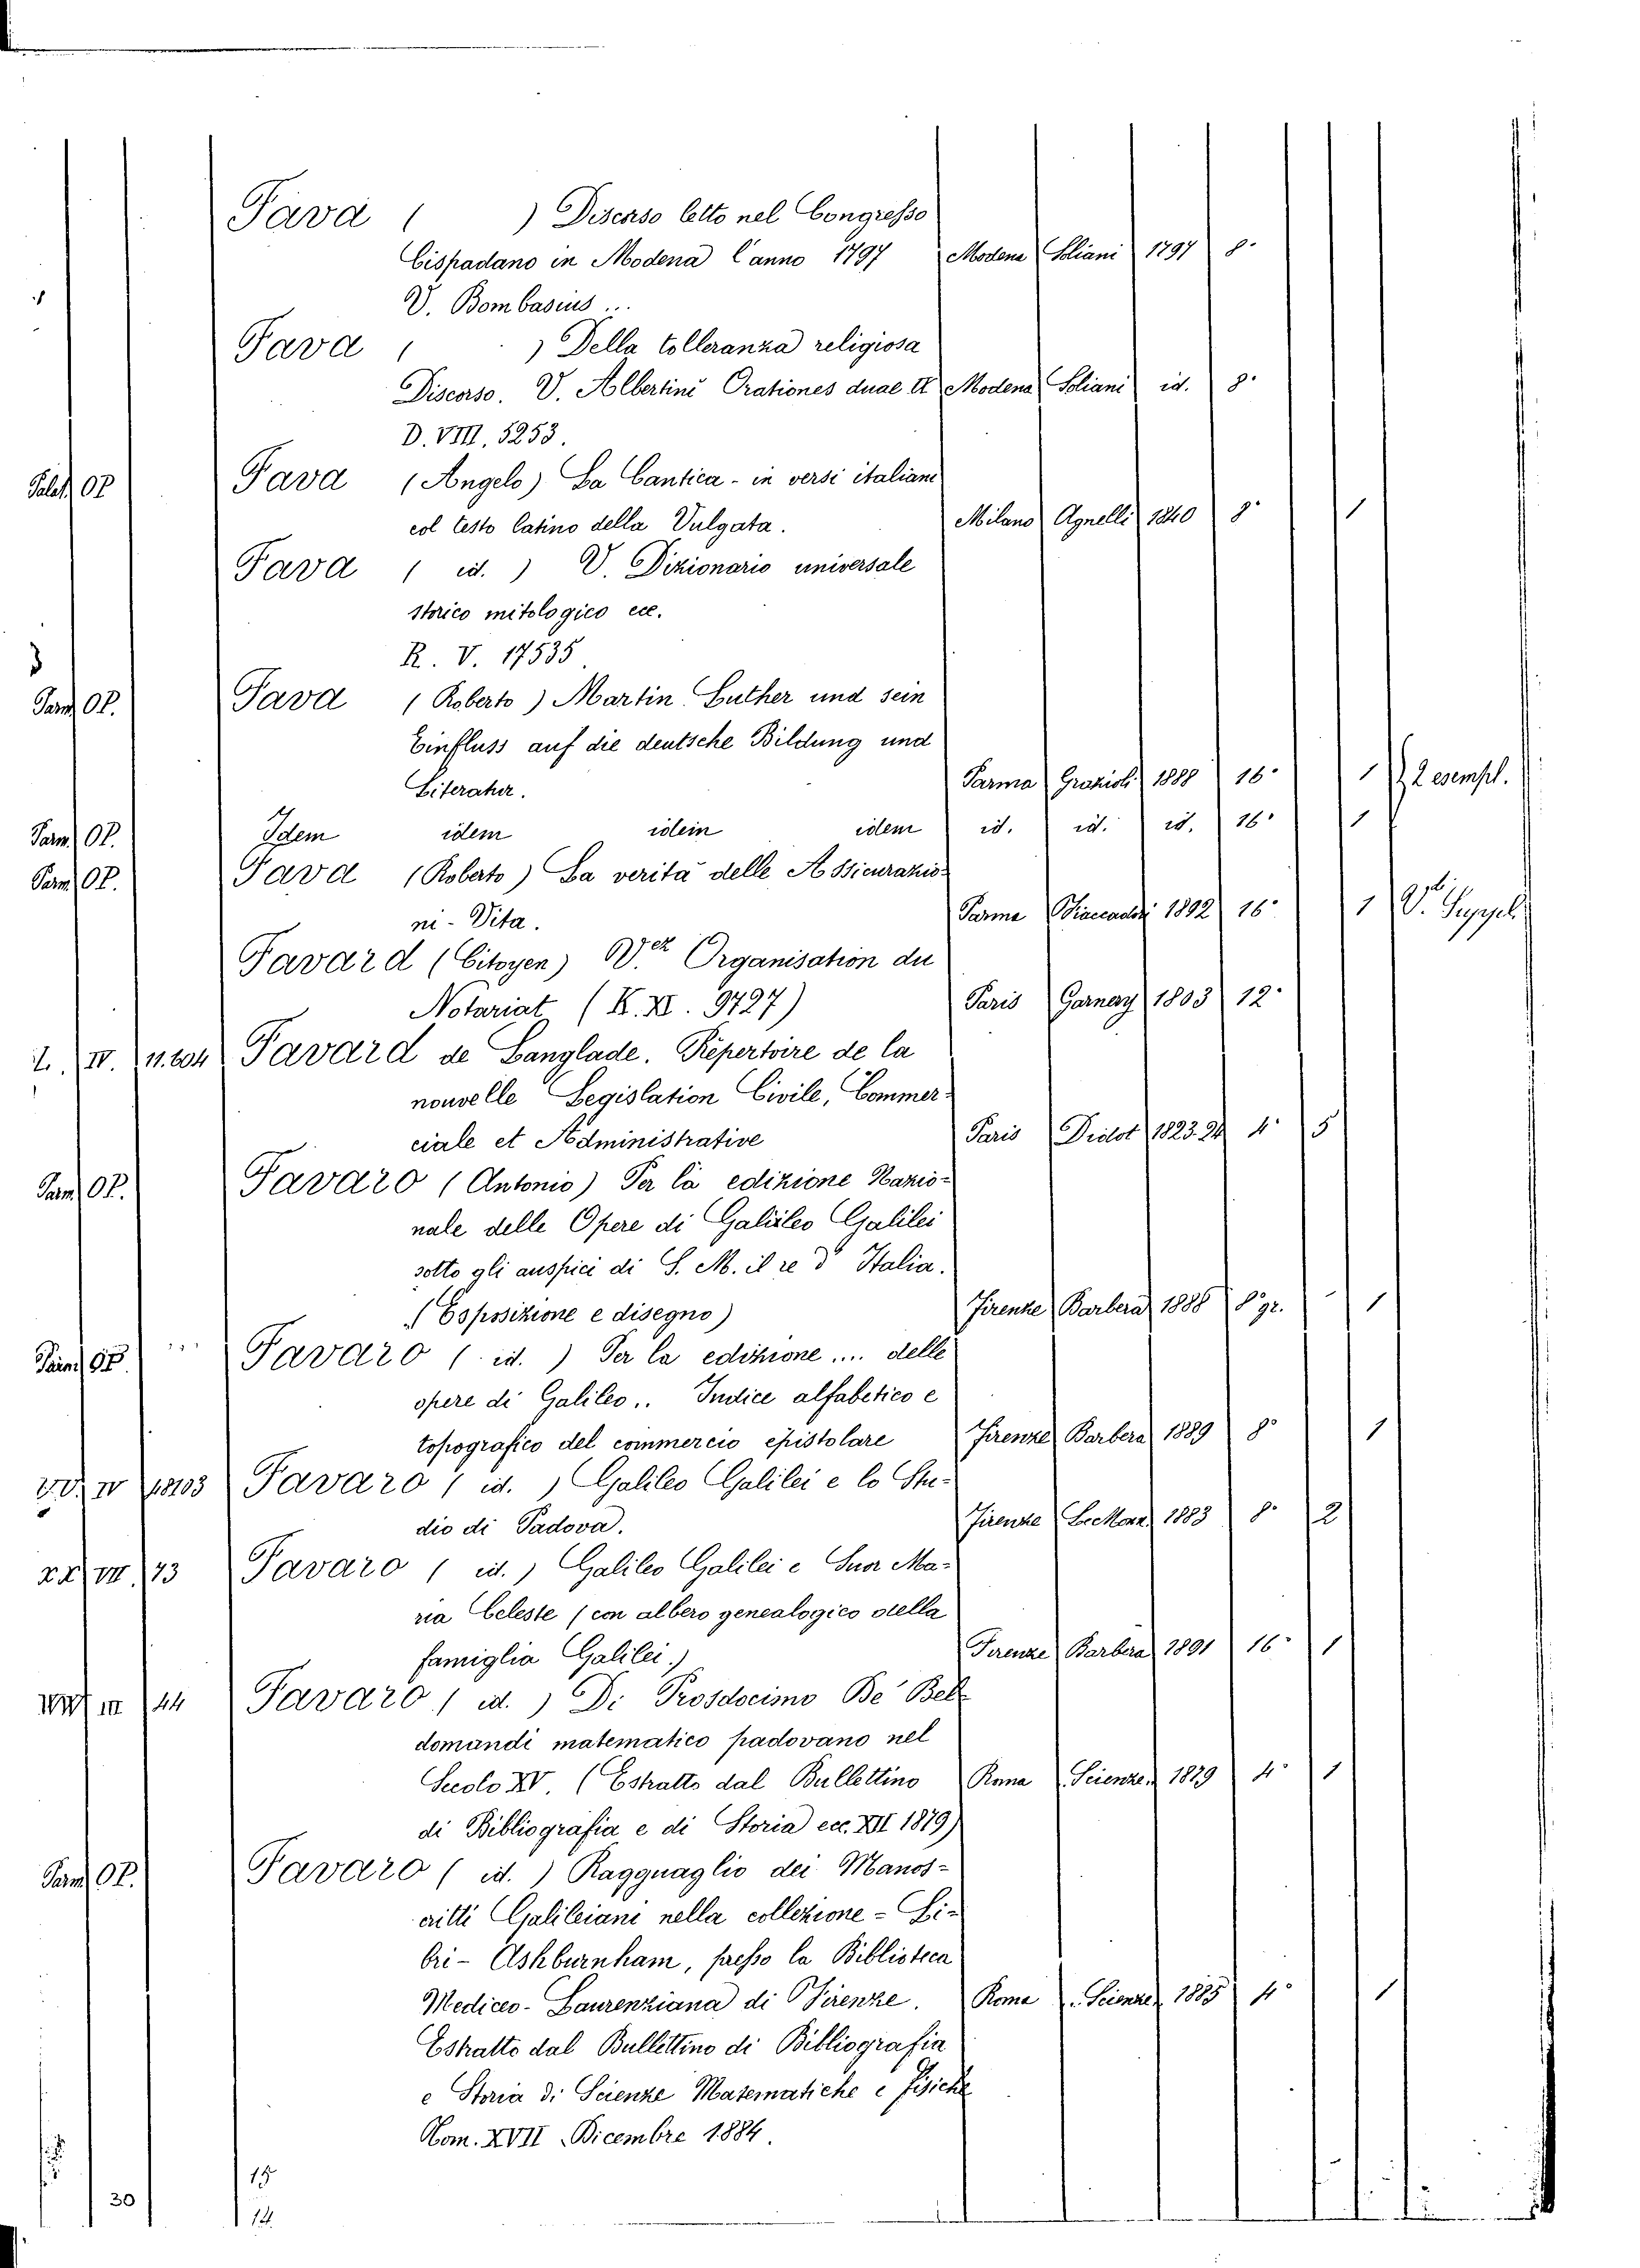 Fava ( ) Discorso letto nel Congresso
Cispadano in Modena l'anno 1797 Modena Soliani 1797 8°
V. Bombasius ...
Fava ( ) Della tolleranza religiosa
Discorso. V. Albertini Orationes duae et Modena Soliani id. 8°
D. VIII. 5253.
Palat. OP Fava (Angelo) La Cantica - in versi italiani
col testo latino della Vulgata. Milano Agnelli 1840 8° 1
Fava ( id. ) V. Dizionario universale
storico mitologico ecc.
R. V. 17535
Parm. OP. Fava (Roberto) Martin Luther und sein
Einfluss auf die deutsche Bildung und
Literatur. Parma Grazioli 1888 16° 1 2 esempl.
Parm. OP. Idem idem idem idem id. id. id. 16° 1
Parm. OP. Fava (Roberto) La verità delle Assicurazio-
ni - Vita. Parma 1892 16° 1 V. Suppl.
Favard (Citoyen) V. et Organisation du
Notariat (K. XI. 9797) Paris Garnery 1803 12°
L. IV. 11.604 Favard de Langlade. Répertoire de la
nouvelle Legislation Civile, Commer-
ciale et Administrative Paris Didot 1823.24 4° 5
Parm. OP. Favaro (Antonio) Per la edizione Nazio-
nale delle Opere di Galileo Galilei
sotto gli auspici di S. M. il re d'Italia.
(Esposizione e disegno) Firenze Barbera 1888 8° gr. 1
Parm. OP. Favaro ( id. ) Per la edizione .... delle
opere di Galileo.. Indice alfabetico e
topografico del commercio epistolare Firenze Barbera 1889 8° 1
VV. IV 18103 Favaro ( id. ) Galileo Galilei e lo Stu-
dio di Padova. Firenze Le Monn. 1883 8° 2
XX. VIII. 73 Favaro ( id. ) Galileo Galilei e Suor Ma-
ria Celeste (con albero genealogico della
famiglia Galilei.) Firenze Barbera 1891 16° 1
III 44 Favaro ( id. ) Di Prosdocimo De' Bel-
domandi matematico padovano nel
Secolo XV. (Estratto dal Bullettino Roma Scienze 1879 4° 1
di Bibliografia e di Storia ecc. XII 1879)
Parm. OP. Favaro ( id. ) Ragguaglio dei Manos-
critti Galileiani nella collezione - Li-
bri - Ashburnham, presso la Biblioteca
Mediceo - Laurenziana di Firenze. Roma Scienze 1885 4° 1
Estratto dal Bullettino di Bibliografia
e Storia di Scienze Matematiche e fisiche
Tom. XVII Dicembre 1884.
15
30
14